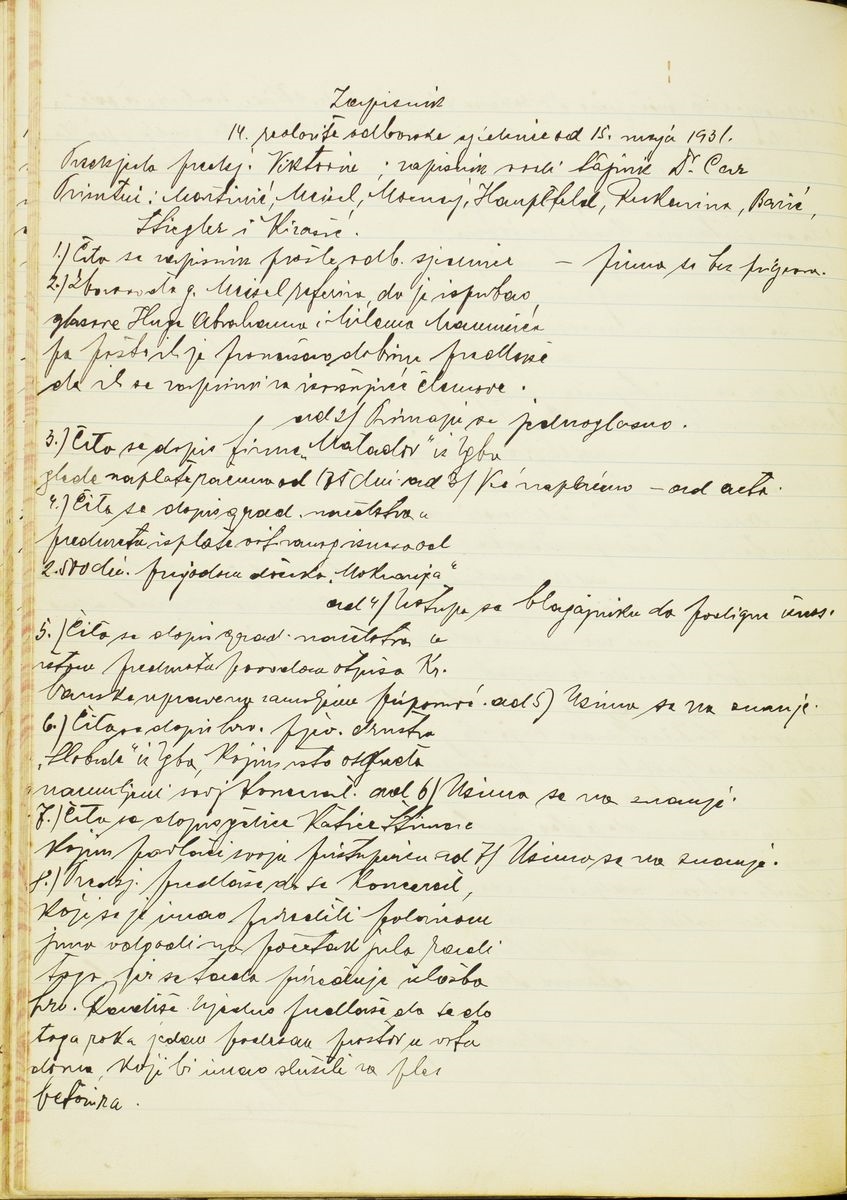 Zapisnik
14. redovite odborske sjednice od 15. maja 1931.
Predsjeda predsj. Viktorin; zapisnik vodi tajnik Dr. Car
Prisutni: Martinić, Meisel, Hauptfeld, Rukavina, Barić,
Stiegler i Kirasić.
1.) Čita se zapisnik prošle odb. sjednice – prima se bez prigovora.
2.) Zborovođa g. Meisel referira, da je ispitao
glasove Huga Abrahama i Milana
pa pošto ih je pronašao dobrim predlaže
da ih se zapiše za izvršujuće članove.
ad 2/ Primaju se jednoglasno.
3.) Čita se dopis firme „Matador" iz Zgba
glede naplate računa od 175 din ad 3/ – ad acta.
4.) Čita se dopis grad. načelstva u
predmetu isplate votiranog iznosa od
2.500 din. prigodom dočeka „Mokranjca"
ad 4/ Ustupa se blagajniku da podigne iznos.
5.) Čita se dopis grad. načelstva u
istom predmetu povodom otpisa Kr.
banske uprave za zamoljenu pripomoć. ad 5) Uzima se na znanje.
6.) Čita se dopis hrv. pjev. društva
„Sloboda" iz Zgba, kojim isto otkazuje
namijenjeni svoj koncerat. ad 6) Uzima se na znanje.
7.) Čita se dopis gdjice Katice
kojim povlači svoju pristupnicu ad 7/ Uzima se na znanje.
8.) Predsj. predlaže da se koncerat,
koji se je imao prirediti polovicom
juna odgodi na početak jula radi
toga jer se tada priređuje izložba
hrv. Radiše. Ujedno predlaže da se do
toga roka jedan podesan prostor u vrtu
doma, koji bi imao služiti za ples
betonira.